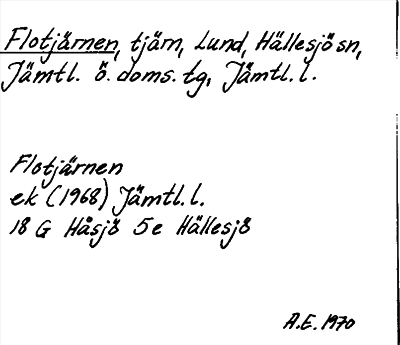 Flotjärnen, tjärn, Lund, Hällesjö sn,
Jämtl. ö. doms. tg, Jämtl. l.
Flotjärnen
ek (1968) Jämtl. l.
18 G Håsjö 5 e Hällesjö
A.E. 1970